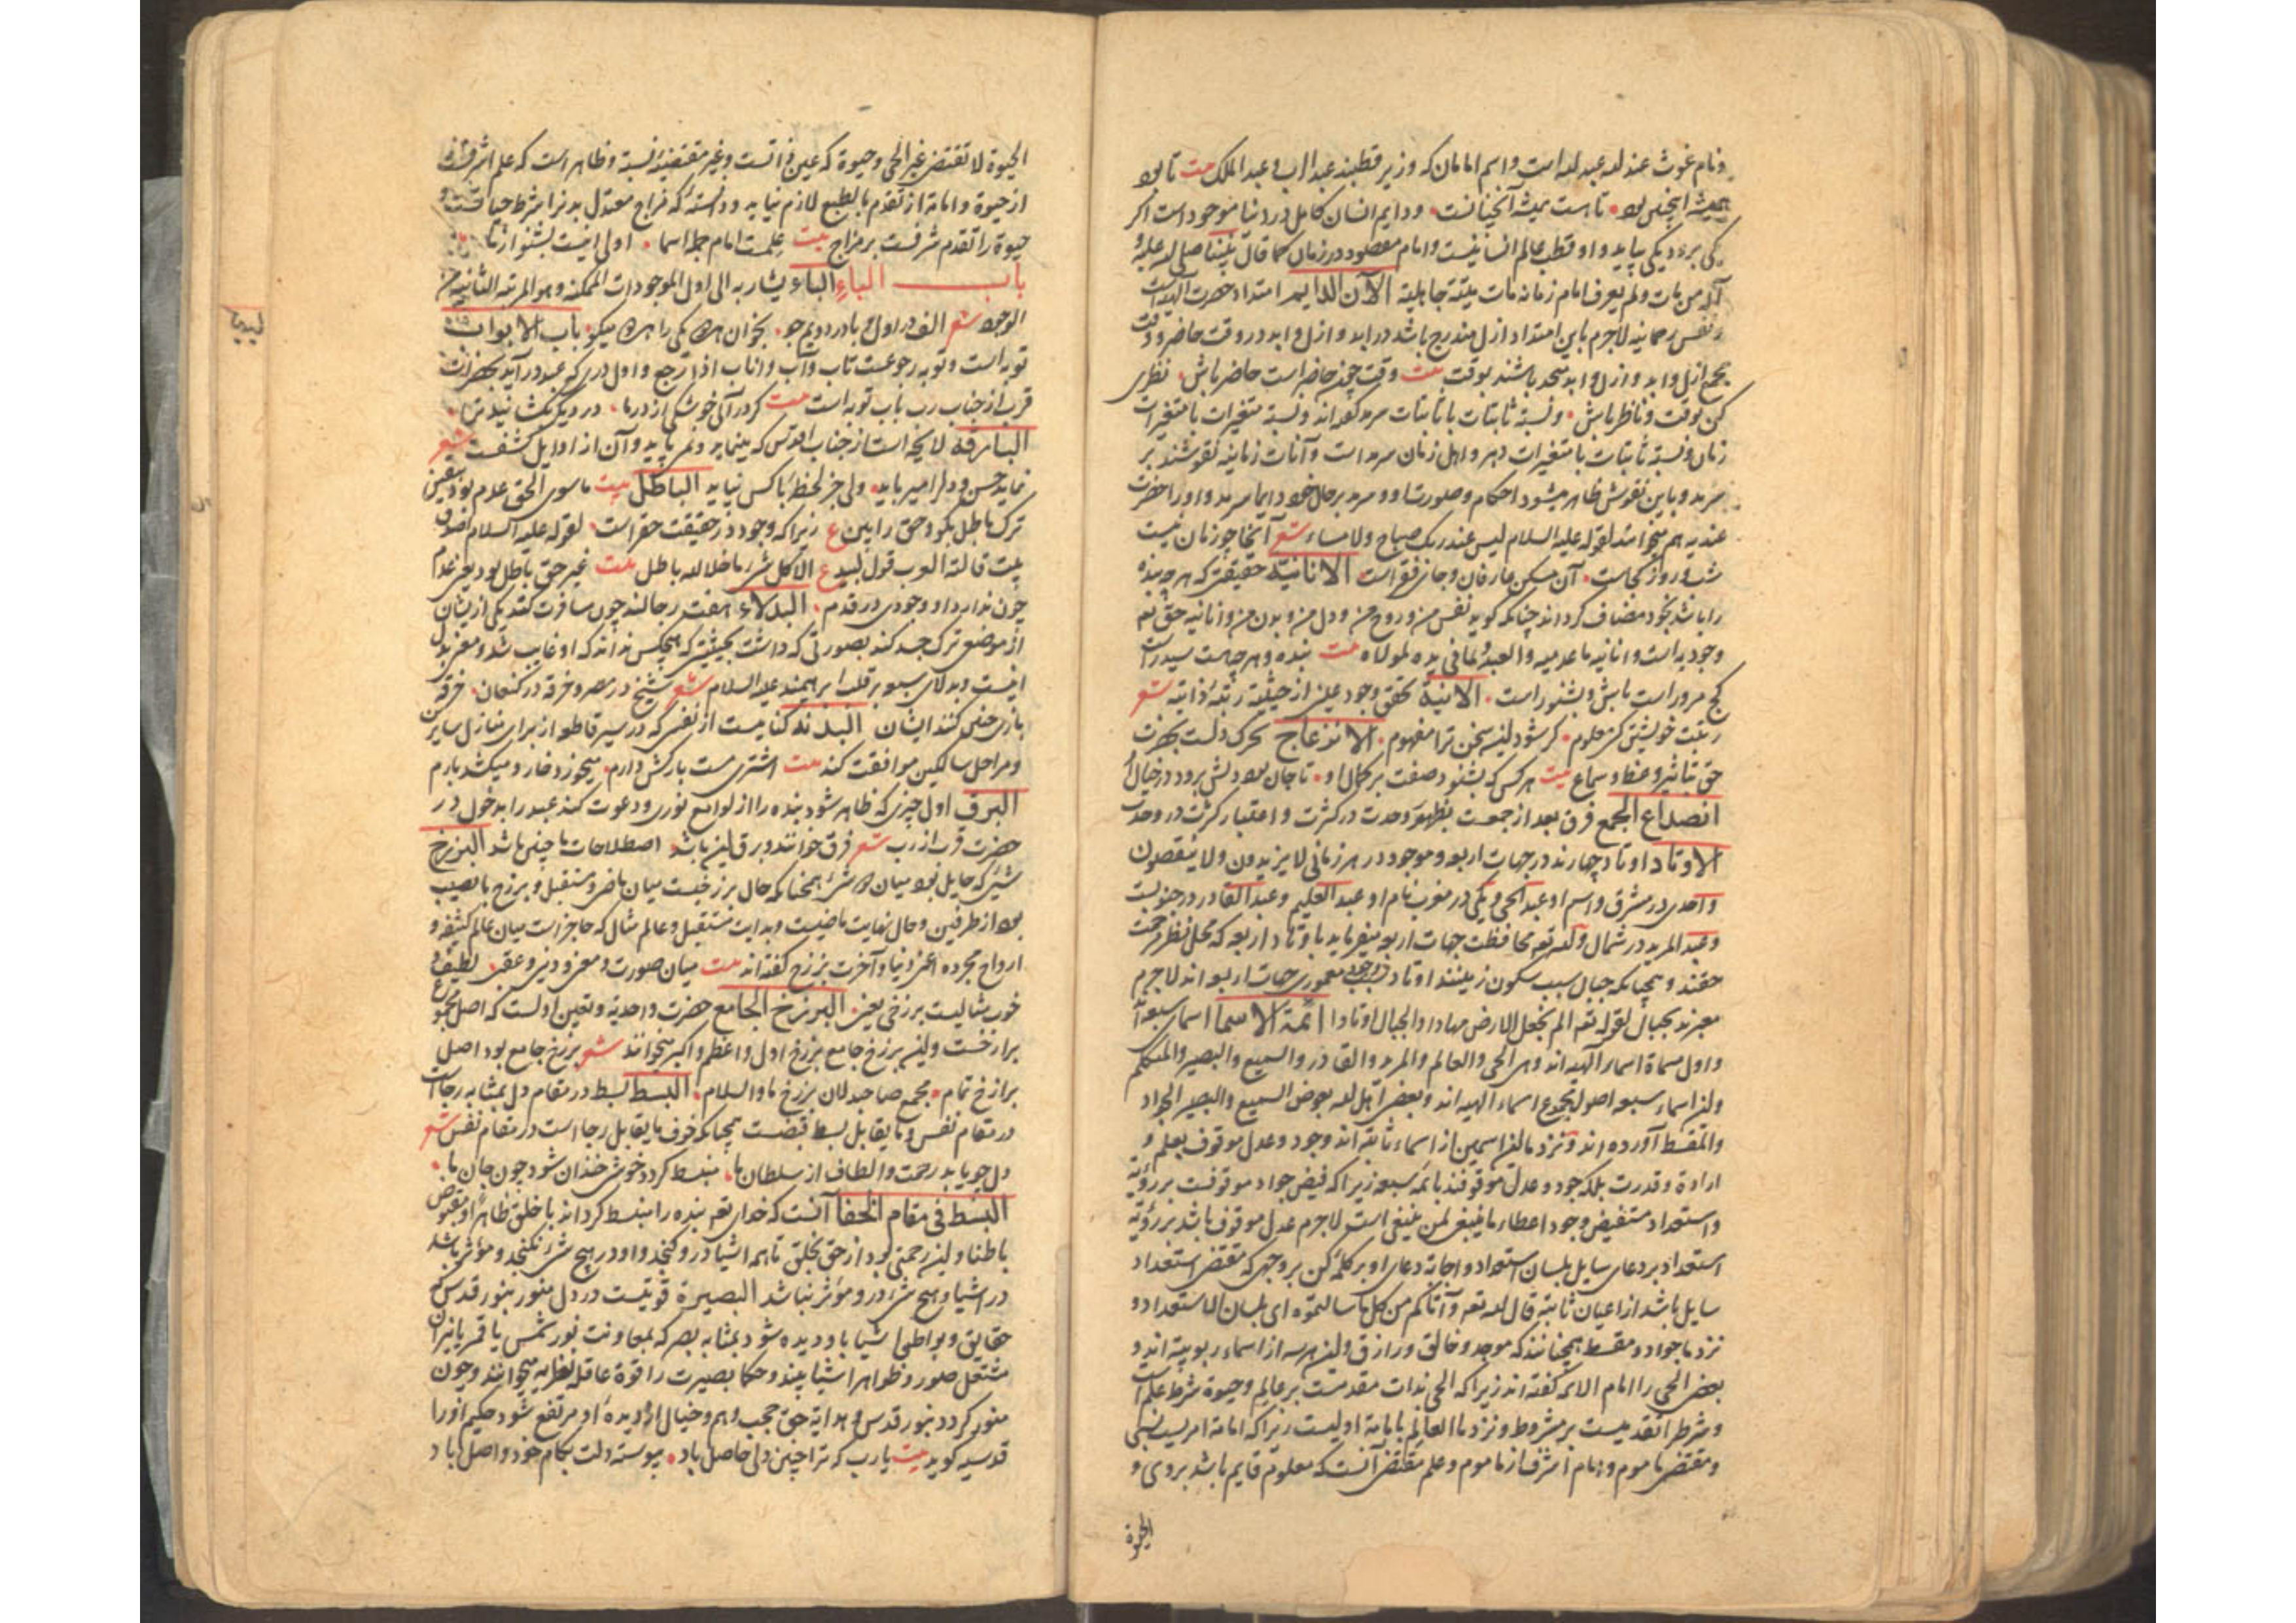 ونام غوث عند الله عبد الله است و اسم امامان که وزیر قطبند عبد الرب و عبد الملک بیت تا بود
همیشه اینچنین بود تا هست همیشه آنچنانست ودایم انسان کامل در دنیا موجود است اگر
یکی برود دیگری بیاید و او قطب عالم انسانیست و امام معصوم در زمان کما قال نبینا صلی الله علیه و
آله من مات ولم یعرف امام زمانه مات میتة جاهلیة الآن الدایم امتداد حضرت الهیه است
نفس رحمانیه لاجرم باین امتداد ازل مندرج باشد در ابد و ازل و ابد در وقت حاضر و وقت
مجمع ازل و ابد و ازل و ابد متحد باشند بوقت بیت وقت چون حاضر است حاضر باش نظری
کن بوقت و ناظر باش و نسبة ثابتات با ثابتات سرمد گفته‌اند و نسبة متغیرات با متغیرات
زمان و نسبة ثابتات با متغیرات دهر و اصل زمان سرمد است و آنات زمانیه نقوشند بر
سرمد و باین نقوش ظاهر میشود احکام و صور و سرمد بر حال خود دایما سرمد و او را حضرت
عندیه هم میخوانند لقوله علیه السلام لیس عند ربک صباح ولا مساء شعر آنجا چو زمان نیست
شب و روز کجاست آن مسکن عارفان و جانان فقر است الانانیة حقیقتی که هر چه بنده
را باشد بخود مضاف گرداند چنانکه گوید نفس من و روح من و دل من و بدن من و انانیه حق تعالی
وجودیه است و انانیه ما عدمیه والعبد وما فی یده لمولاه بیت بنده و هر چه هست سید راست
کج مرو راست باش و بشنو راست الانیة تحقق وجود عینی از حیثیة رتبهٔ ذاتیه شعر
رتبت خویشتن کن معلوم گر شود این سخن ترا مفهوم الانزعاج تحرک دلست بحضرت
حق بتأثیر وعظ و سماع بیت هر کس که بشنود صفت بر کمال او تا جان بود دلش برود در خیال او
انصداع الجمع فرق بعد از جمعست بظهور وحدت در کثرت و اعتبار کثرت در وحدت
الاوتاد اوتاد چهارند در جهات اربعه و موجود در هر زمانی لا یزیدون ولا ینقصون
واحدی در مشرق و اسم او عبد الحی و یکی در مغرب نام او عبد العلیم و عبد القادر در جنوبست
و عبد المرید در شمال والله تعالی محافظت جهات اربعه میفرماید باوتاد اربعه که محل نظر رحمت
حقند و همچنانکه جبال سبب سکون زمینند اوتاد موجب معموری جهات اربعه‌اند لاجرم
معبرند بجبال لقوله تعالی الم نجعل الارض مهادا والجبال اوتادا ائمة الاسما اسمای سبعه‌اند
و اول مسماة اسمای الهیه‌اند و هی الحی والعالم والمرید والقادر والسمیع والبصیر والمتکلم
و این اسماء سبعه اصول مجموع اسماء الهیه‌اند و بعضی اهل الله بعوض السمیع والبصیر الجواد
والمقسط آورده‌اند و نزد ما این اسمین از اسماء ثانیه‌اند وجود و عدل موقوف بعلم و
ارادة و قدرت بلکه جود و عدل موقوفند بائمه سبعه زیرا که فیض جواد موقوفست بر رؤیة
استعداد مستفیض وجود اعطاء ما ینبغی لمن ینبغی است لاجرم عدل موقوف باشد بر رؤیة
استعداد بر دعای سایل بلسان استعداد و اجابة دعای او بر کلمه کن بر وجهی که مقتضی استعداد
سایل باشد از اعیان ثابته قال الله تعالی وآتاکم من کل ما سالتموه ای بلسان الاستعداد و
نزد ما جواد و مقسط همچنانند که موجد و خالق و رازق و این هر سه از اسماء ربوبیته‌اند و
بعضی الحی را امام الائمه گفته‌اند زیرا که الحی بذات مقدمست بر عالم و حیوة شرط علم است
و شرط را تقدمیست بر مشروط و نزد ما العالم بامامة اولیست زیرا که امامة امریست نسبی
و مقتضی ماموم و امام اشرف از ماموم و علم مقتضی آنست که معلوم قایم باشد بروی و
الحیوة
الحیوة لا تقتضی غیر الحی و حیوة که عین ذاتست و غیر مقتضیهٔ نسبة و ظاهر است که علم اشرفست
از حیوة و امامة از تقدم بالطبع لازم نیاید و دانسته که مزاج معتدل بدنرا شرط حیاتست و
حیوة را تقدم شرفست بر مزاج بیت علمست امام جمله اسما اولی اینست بشنو از ما
باب الباء الباء یشار به الی اول الموجودات الممکنه و هو المرتبه الثانیه من
الوجود شعر الف در اول و با در دویم جو بخوان هر دو یکی را هر دو میگو باب الابواب
توبه است و توبه رجوعست تاب وآب واناب اذا رجع و اول دری که عبد در آید بحضرت
قرب از جناب رب باب توبه است بیت گر در آئی خوشکی از در ما در دیگر نگشانید ترا
البارقة لایحه است از جناب اقدس که مینماید و نمی پاید و آن از اوایل کشفست شعر
نماید حسن و دلرا میرباید ولی جز لحظهٔ با کس نپاید الباطل بیت ماسوی الحق عدم بود بیقین
ترک باطل بگو و حق را بین ع زیرا که وجود در حقیقت حقراست لقوله علیه السلام اصدق
بیت قالته العرب قول لبید ع الا کل شیء ما خلا الله باطل بیت غیر حق باطل بود یعنی عدم
چون ندارد او وجودی در قدم البدلاء هفت رجالند چون مسافرت کند یکی ازیشان
از موضعی ترک جسد کند بصورتی که داشت بحیثیتی که هیچکس نداند که او غایب شد و معنی بدل
اینست و بدلای سبعه بر قلب ابراهیمند علیه السلام شعر شیخ در مصر و خرقه در کنعان خرقه
بازی چنین کنند ایشان البدنه کنایت از نفسی که در سیر قاطعه از برای منازل سایر
و مراحل سالکین موافقت کند بیت اشتری مست بارکش دارم میخورد خار و میکشد بارم
البرق اول چیزی که ظاهر شود بنده را از لوامع نوری و دعوت کند عبد را بدخول در
حضرت قرب از رب شعر فرق خوانند و برق این باشد اصطلاحات ما چنین باشد البرزخ
شیئی که حایل بود میان دو شیء همچنانکه حال برزخیست میان ماضی و مستقبل و برزخ با نصیب
بود از طرفین و حال نهایت ماضیست و بدایت مستقبل و عالم مثال که حاجز است میان عالم کثیفه و
ارواح مجرده اعنی دنیا و آخرت برزخ گفته‌اند بیت میان صورت و معنی و دنیی و عقبی لطیف و
خوب مثالیست برزخی یعنی البرزخ الجامع حضرت واحدیة و تعین اولست که اصل مجموع
برازخست و این برزخ جامع برزخ اول و اعظم و اکبر میخوانند شعر برزخ جامع بود اصل
برازخ تمام مجمع صاحبدلان برزخ ما والسلام البسط بسط در مقام دل بمثابه رجاست
در مقام نفس و ما یقابل بسط قبضست همچنانکه خوف ما یقابل رجا است در مقام نفس شعر
دل چو یابد رحمت و الطاف از سلطان ما منبسط گردد خوش خندان شود چون جان ما
البسط فی مقام الخفا آنست که خدای تعالی بنده را منبسط گرداند با خلق ظاهرا و مقبوض
باطنا و این رحمتی بود از حق بخلق تا همه اشیا در و گنجد و او در هیچ شیء نگنجد و مؤثر باشد
در اشیا و هیچ شیء در و مؤثر نباشد البصیرة قوتیست در دل منور بنور قدس که
حقایق و بواطن اشیا باو دیده شود بمثابه بصر که بمعاونت نور شمس یا قمر یا نیران
مشتعل صور و ظواهر اشیا بیند و حکما بصیرت را قوة عاقله نظریه میخوانند و چون
منور گردد بنور قدس و هدایة حق حجب وهم و خیال از دیدهٔ او مرتفع شود حکیم او را
قدسیه گوید بیت یا رب که ترا چنین دلی حاصل باد پیوسته دلت بکام خود واصل باد